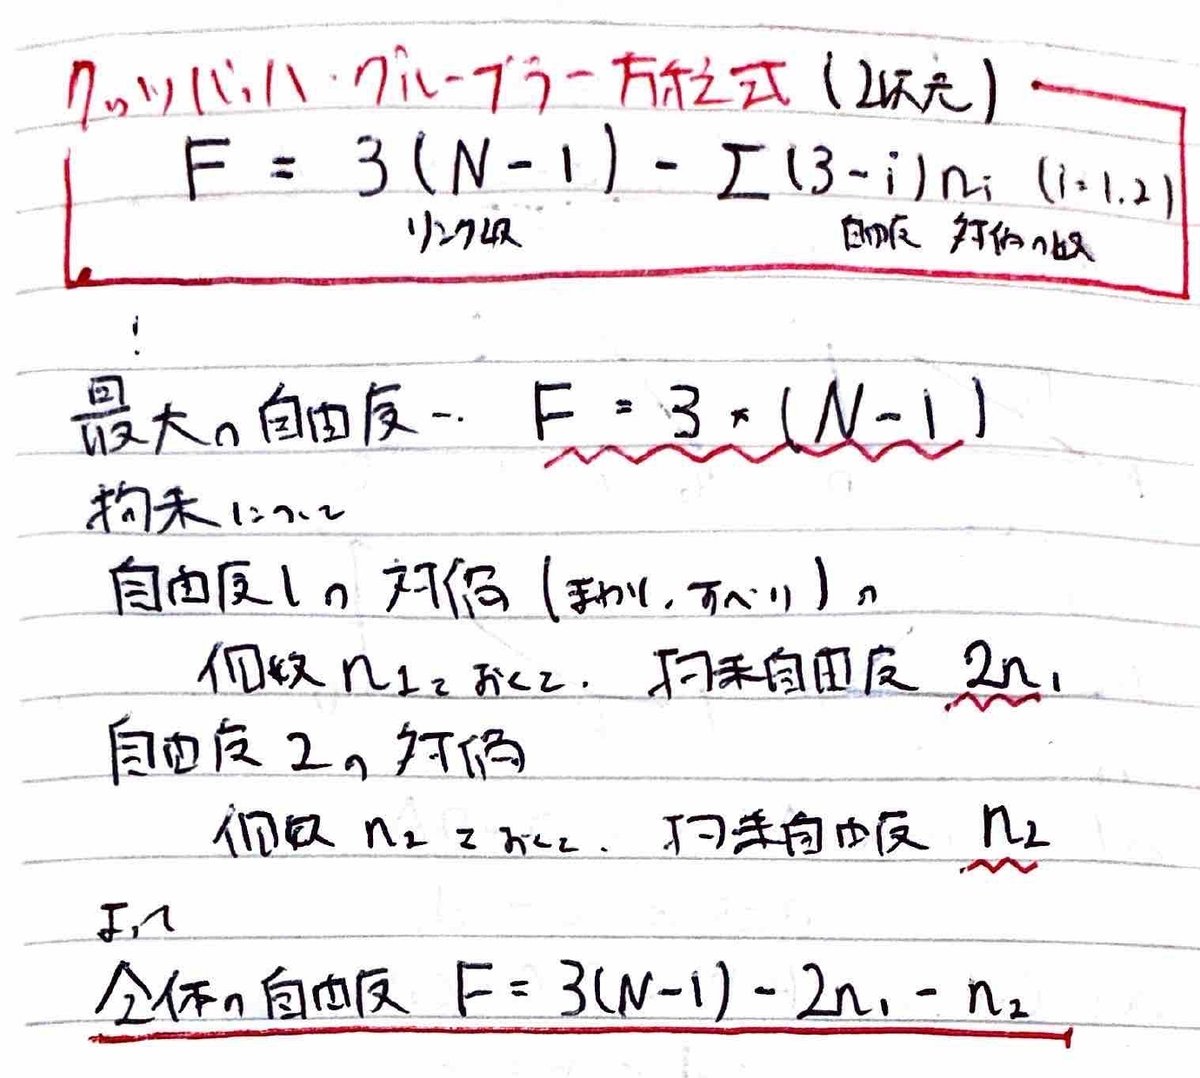 クッツバッハ・グルーブラー方程式 (2次元)
F = 3(N-1) - Σ(3-i)ni (i=1.2)
リンク数 自由度 対偶の数
最大の自由度… F = 3*(N-1)
拘束について
自由度1の対偶(まわり、すべり)の
個数n1とおくと. 拘束自由度 2n1
自由度2の対偶
個数n2とおくと. 拘束自由度 n2
よって
全体の自由度 F = 3(N-1) - 2n1 - n2